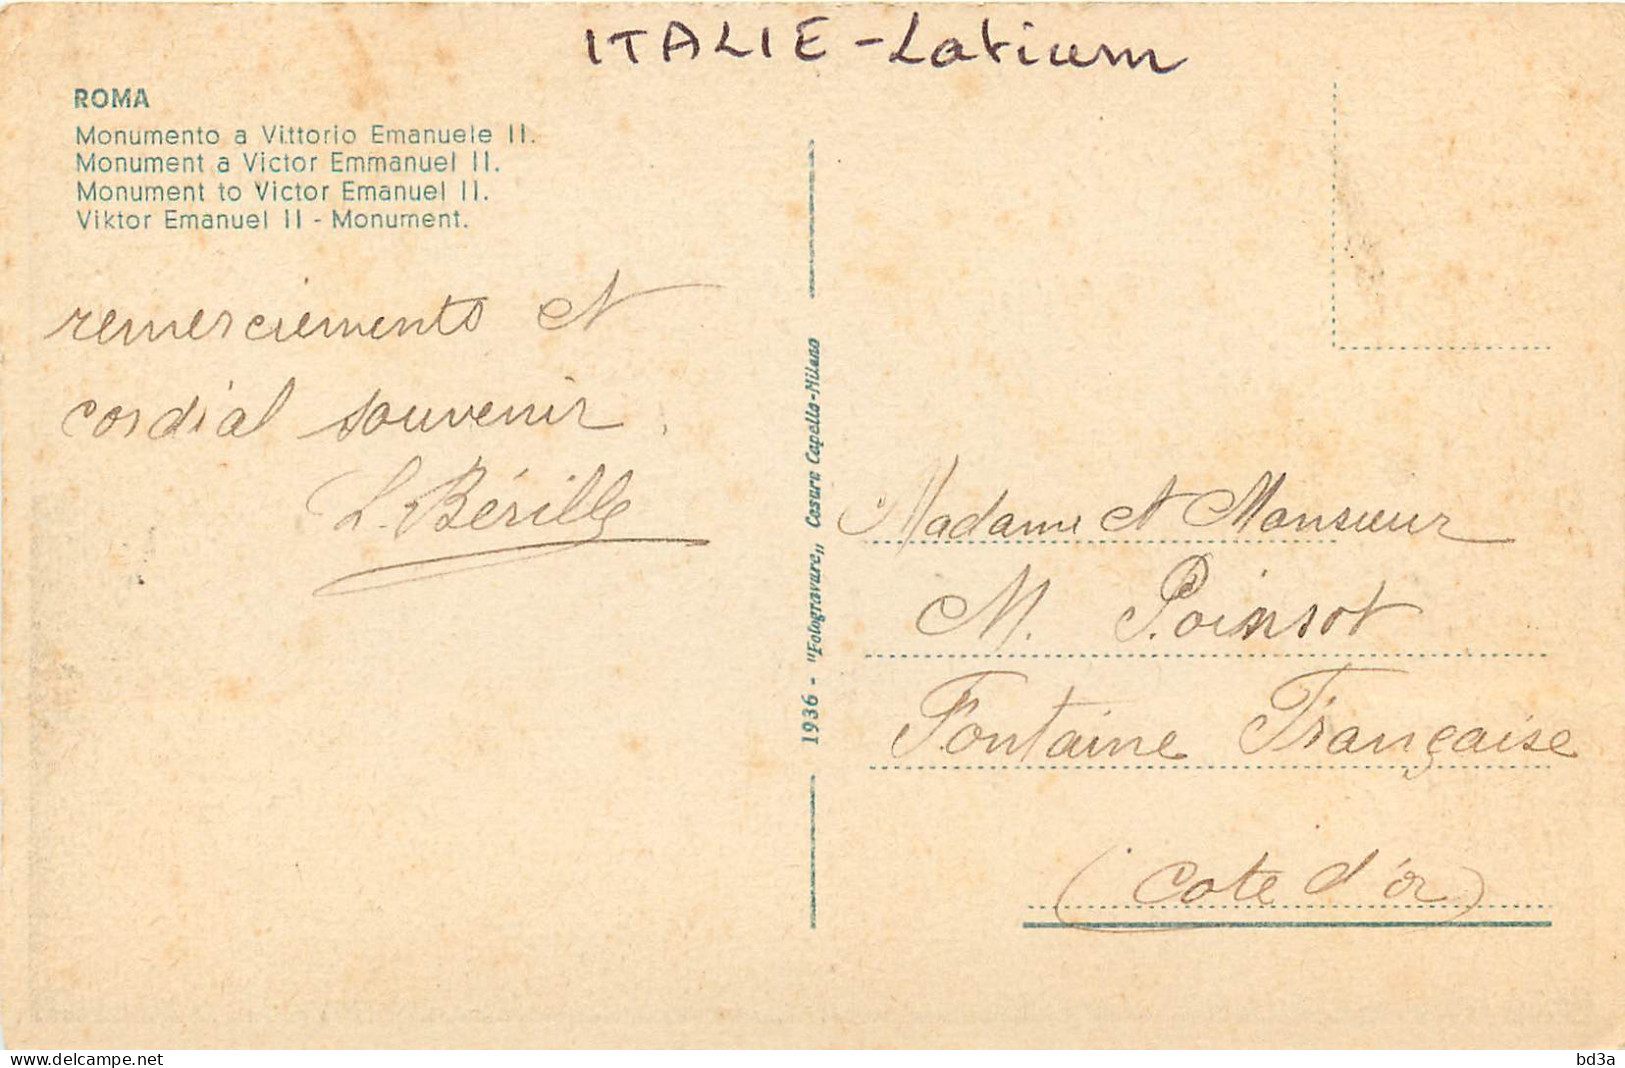 ITALIE - Latium
ROMA
Monumento a Vittorio Emanuele II.
Monument a Victor Emmanuel II.
Monument to Victor Emanuel II.
Viktor Emanuel II - Monument.
remerciements et
cordial souvenir.
L. Bérille
1936 - "Fotogravure„ Cesare Capello-Milano
Madame et Monsieur
M. Poinsot
Fontaine Française
(Cote d'or)
delcampe.net
bd3a